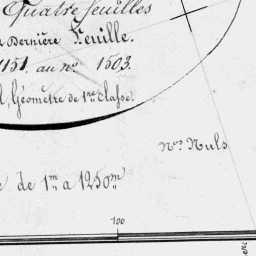 Quatre feuilles
Dernière Feuille.
1151. au no. 1503.
Géomètre de 1re classe.
Nos. Nuls
de 1m a 1250m
100